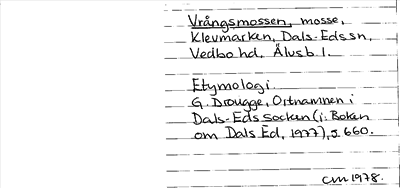 Vrångsmossen, mosse,
Klevmarken, Dals-Eds sn,
Vedbo hd, Älvsb. l.
Etymologi.
G. Drougge, Ortnamnen i
Dals-Eds socken (i: Boken
om Dals Ed, 1977), s 660.
CM 1978.